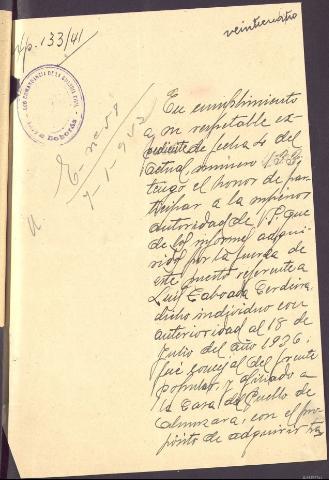 veinticuatro
Exp. 133/41
E. nº 58
7-1-942
En cumplimiento
a su respetable ex-
pediente de fecha 4 del
actual, número 133,
tengo el honor de par-
ticipar a la superior
autoridad de V.S. que
de los informes adqui-
ridos por la fuerza de
este puesto referente a
Luis Taboada Cerdeira,
dicho individuo con
anterioridad al 18 de
Julio del año 1936,
fué concejal del frente
popular, y afiliado a
la Casa del Pueblo de
con el pro-
pósito de adquirir